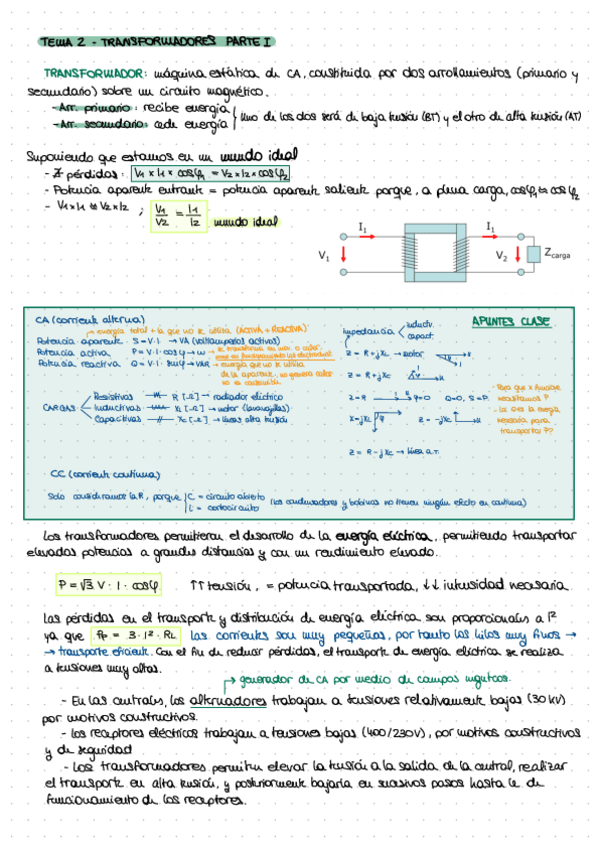 TEMA 2 - TRANSFORMADORES PARTE I
TRANSFORMADOR: máquina estática de CA, constituida por dos arrollamientos (primario y
secundario) sobre un circuito magnético.
- Arr. primario: recibe energía
- Arr. secundario: cede energía
Uno de los dos será de baja tensión (BT) y el otro de alta tensión (AT)
Suponiendo que estamos en un mundo ideal
pérdidas: V1 x I1 x cosφ1 = V2 x I2 x cosφ2
- Potencia aparente entrante = potencia aparente saliente porque, a plena carga, cosφ1 ≈ cosφ2
- V1 x I1 ≈ V2 x I2 ; V1/V2 = I1/I2 mundo ideal
I1 I1
V1 V2 Zcarga
CA (corriente alterna)
APUNTES CLASE
energía total + la que no se utiliza (ACTIVA + REACTIVA)
Potencia aparente S = V·I → VA (voltiamperios activos)
Potencia activa P = V·I·cosφ → W → se transforma en mov. o calor
Potencia reactiva Q = V·I·senφ → VAR → energía que no se utiliza
de la aparente, no genera calor
no es contenida
impedancia induct. capacit.
Z = R + jXL → motor
Z = R + jXC
Z = R φ=0 Q=0, S=P
X = jXC Z = -jXC
Z = R - jXC → línea a.T.
- Para que x funcione
necesitamos P
- La Q es la energía
necesaria para
transportar P?
CARGAS
Resistivas R [Ω] → radiador eléctrico
Inductivas XL [Ω] → motor (lavavajillas)
Capacitivas XC [Ω] → líneas alta tensión
CC (corriente continua)
Solo consideramos la R, porque C = circuito abierto
L = cortocircuito
(los condensadores y bobinas no tienen ningún efecto en continua)
Los transformadores permitieron el desarrollo de la energía eléctrica, permitiendo transportar
elevadas potencias a grandes distancias y con un rendimiento elevado.
P = √3 V · I · cosφ ↑↑ tensión, = potencia transportada, ↓↓ intensidad necesaria.
Las pérdidas en el transporte y distribución de energía eléctrica son proporcionales a I²
ya que Pp = 3 · I² · RL las corrientes son muy pequeñas, por tanto los hilos muy finos →
→ transporte eficiente. Con el fin de reducir pérdidas, el transporte de energía eléctrica se realiza
a tensiones muy altas.
generador de CA por medio de campos magnéticos.
- En las centrales, los alternadores trabajan a tensiones relativamente bajas (30 kV)
por motivos constructivos.
- los receptores eléctricos trabajan a tensiones bajas (400/230V), por motivos constructivos
y de seguridad
- Los transformadores permiten elevar la tensión a la salida de la central, realizar
el transporte en alta tensión, y posteriormente bajarla en sucesivos pasos hasta la de
funcionamiento de los receptores.